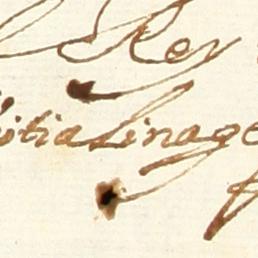 Rey
itia linage